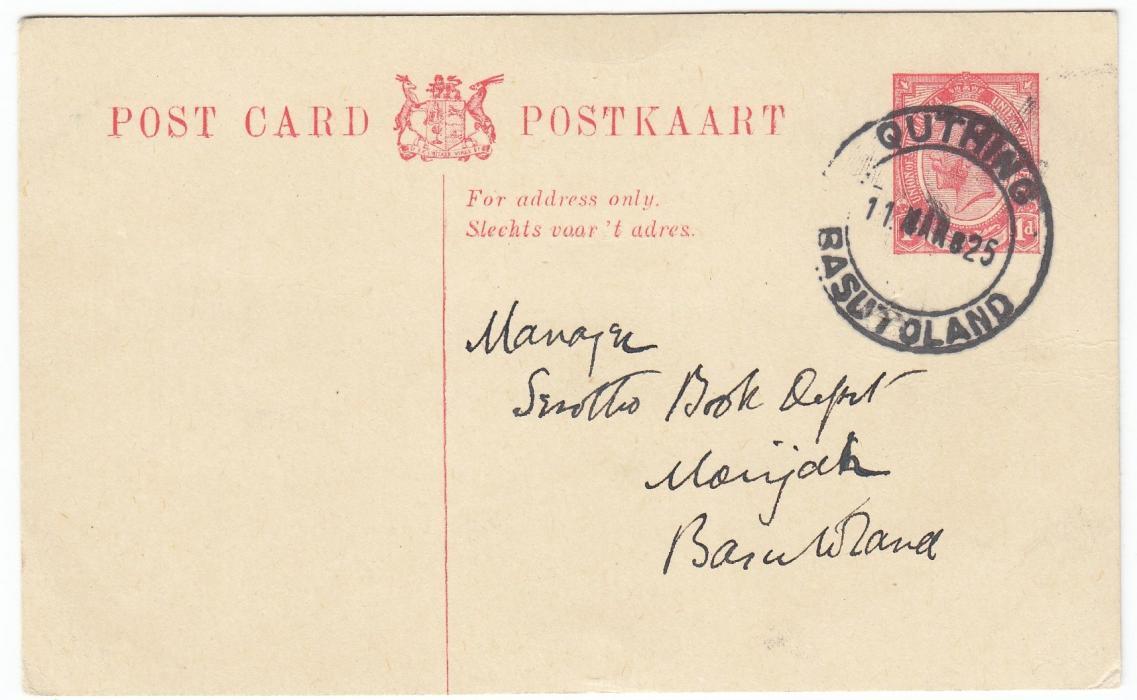 POST CARD POSTKAART
For address only.
Slechts voor 't adres.
1d.
QUTHING
11 MAR 25
BASUTOLAND
Manager
Sesotho Book Depot
Morijah
Basutoland